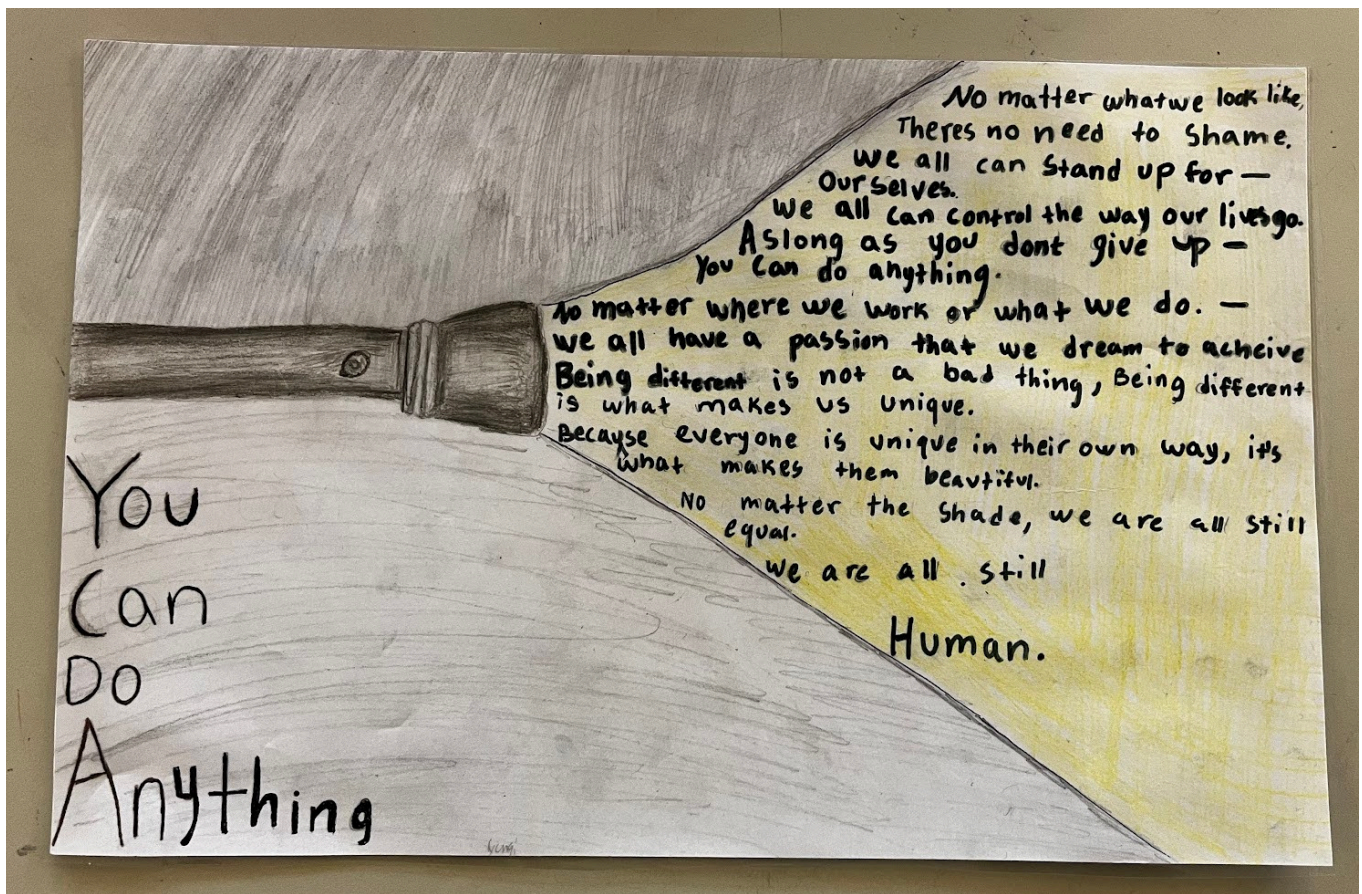 No matter whatwe look like,
Theres no need to shame.
we all can stand up for —
Ourselves.
we all can control the way our lives go.
Aslong as you dont give up —
You can do anything.
No matter where we work or what we do. —
we all have a passion that we dream to acheive
Being different is not a bad thing, Being different
is what makes us unique.
Because everyone is unique in their own way, it's
what makes them beautiful.
No matter the shade, we are all still
equal.
we are all still
Human.
You
Can
Do
Anything